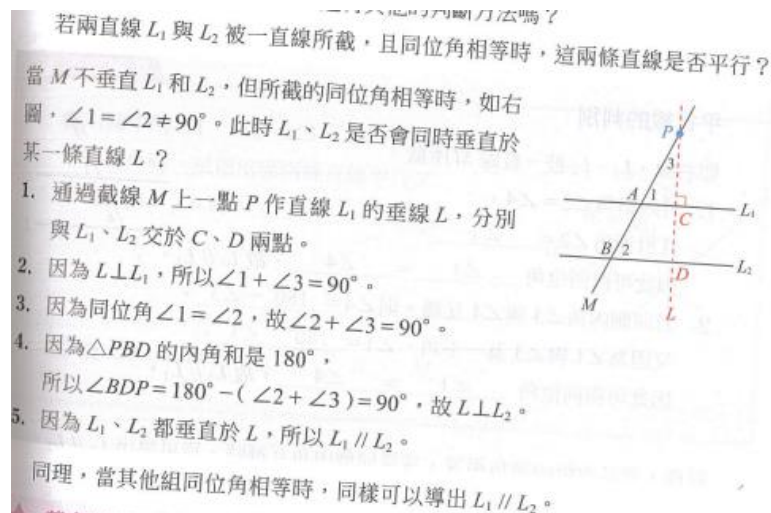 若兩直線 L₁ 與 L₂ 被一直線所截，且同位角相等時，這兩條直線是否平行？
當 M 不垂直 L₁ 和 L₂，但所截的同位角相等時，如右
圖，∠1＝∠2≠90°。此時 L₁、L₂ 是否會同時垂直於
某一條直線 L？
1. 通過截線 M 上一點 P 作直線 L₁ 的垂線 L，分別
與 L₁、L₂ 交於 C、D 兩點。
2. 因為 L⊥L₁，所以∠1＋∠3＝90°。
3. 因為同位角∠1＝∠2，故∠2＋∠3＝90°。
4. 因為△PBD 的內角和是 180°，
所以∠BDP＝180°－(∠2＋∠3)＝90°，故 L⊥L₂。
5. 因為 L₁、L₂ 都垂直於 L，所以 L₁ // L₂。
同理，當其他組同位角相等時，同樣可以導出 L₁ // L₂。
P
3
A 1 C L₁
B 2 D L₂
M L